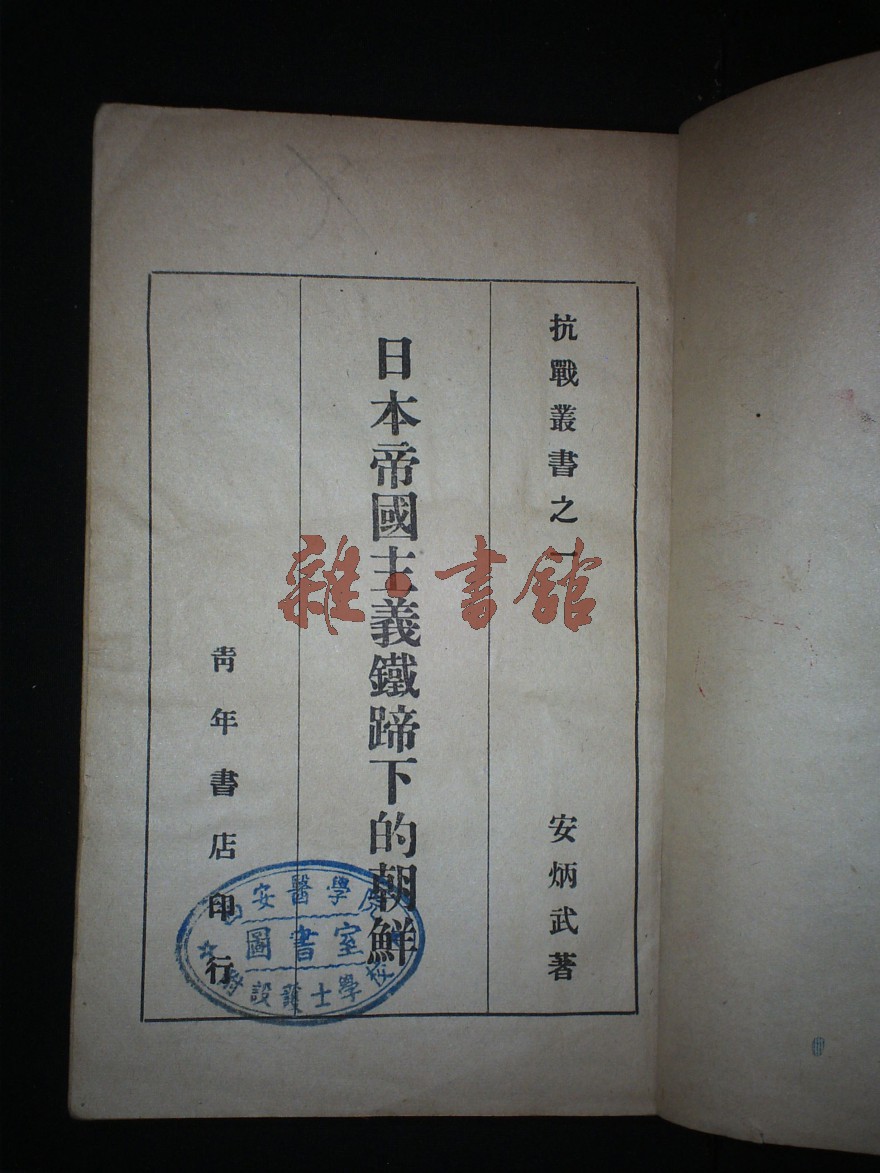 抗戰叢書之一
安炳武著
日本帝國主義鐵蹄下的朝鮮
青年書店印行
雜·書館
西安醫學院
圖書室
附設護士學校